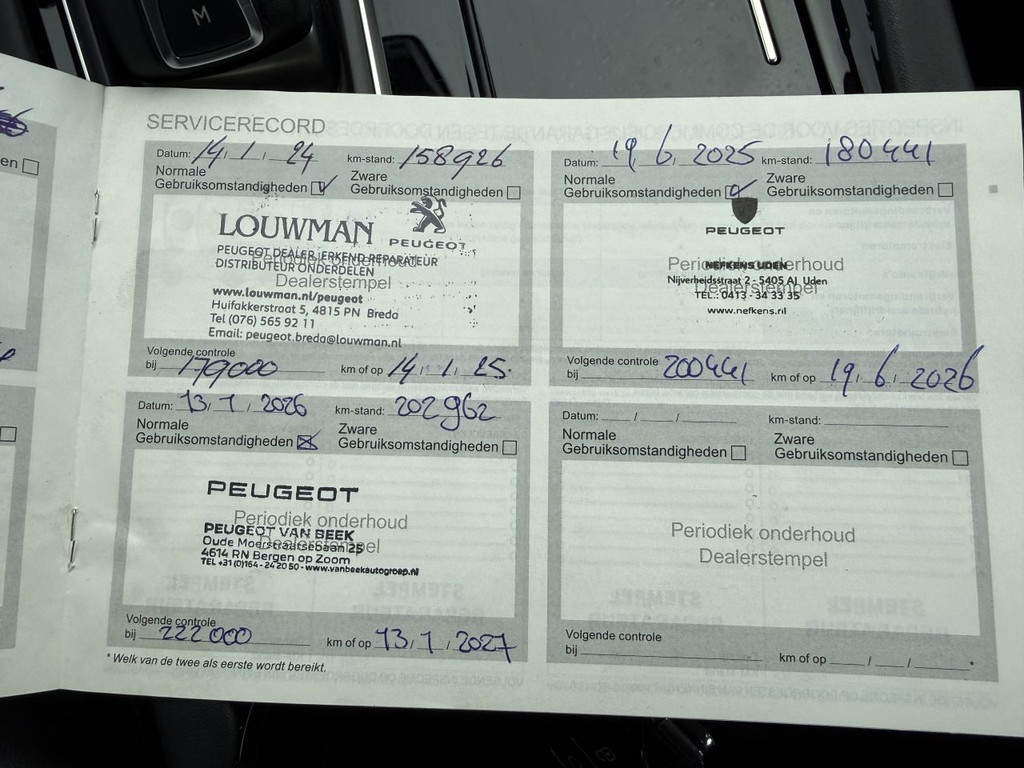 M
SERVICERECORD
Datum: 14, 1, 24 km-stand: 158926
Normale Gebruiksomstandigheden Zware Gebruiksomstandigheden
LOUWMAN PEUGEOT
PEUGEOT DEALER, ERKEND REPARATEUR
Periodiek onderhoud
DISTRIBUTEUR ONDERDELEN
Dealerstempel
www.louwman.nl/peugeot
Huifakkerstraat 5, 4815 PN Breda
Tel (076) 565 92 11
Email: peugeot.breda@louwman.nl
Volgende controle
bij 179000 km of op 14, 1, 25.
Datum: 19, 6, 2025 km-stand: 180441
Normale Gebruiksomstandigheden Zware Gebruiksomstandigheden
PEUGEOT
Periodiek onderhoud
NEFKENS UDEN
Nijverheidsstraat 2 - 5405 AJ Uden
Dealerstempel
TEL.: 0413 - 34 33 35
www.nefkens.nl
Volgende controle
bij 200441 km of op 19, 6, 2026
Datum: 13, 1, 2026 km-stand: 202962
Normale Gebruiksomstandigheden Zware Gebruiksomstandigheden
PEUGEOT
Periodiek onderhoud
PEUGEOT VAN BEEK
Oude Moerstraatsebaan 25
Dealerstempel
4614 RN Bergen op Zoom
TEL +31 (0)164 - 24 20 50 - www.vanbeekautogroep.nl
Volgende controle
bij 222000 km of op 13, 1, 2027
Datum: / / km-stand:
Normale Gebruiksomstandigheden Zware Gebruiksomstandigheden
Periodiek onderhoud
Dealerstempel
Volgende controle
bij km of op / / *
* Welk van de twee als eerste wordt bereikt.